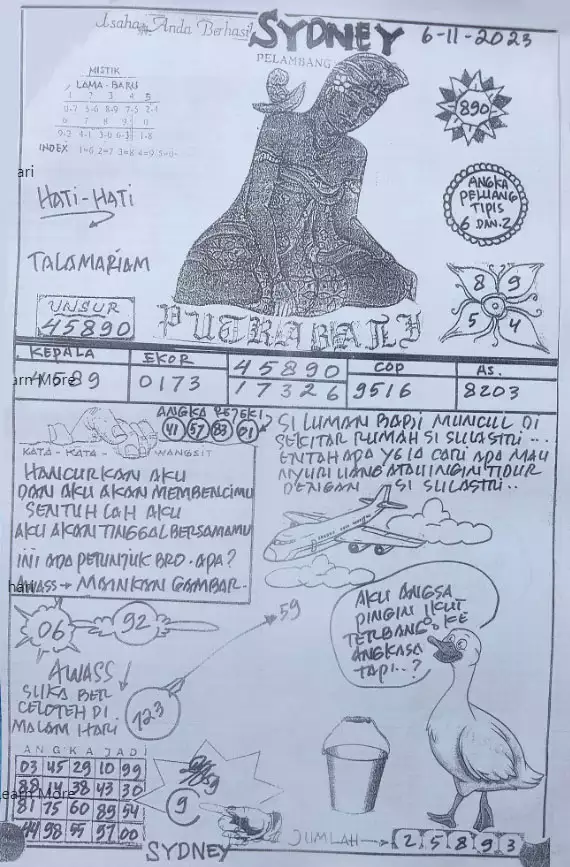 Usaha Anda Berhasil
SYDNEY
6-11-2023
PELAMBANG
MISTIK
LAMA - BARU
1 2 3 4 5
0-7 5-6 8-9 7-5 2-1
6 7 8 9 0
9-2 4-1 3-0 6-3 1-8
INDEX 1=6 2=7 3=8 4=9 5=0
890
ari
HATI-HATI
ANGKA
PELUANG
TIPIS
6 DAN 2
TALAMARIAM
8 9
5 4
UNSUR
45890
PUTRA BALI
KEPALA
4589
EKOR
0173
45890
17326
COP
9516
AS.
8203
arn More
ANGKA REJEKI
41 57 83 01
KATA - KATA - WANGSIT
HANCURKAN AKU
DAN AKU AKAN MEMBENCIMU
SENTUH LAH AKU
AKU AKAN TINGGAL BERSAMAMU
INI ADA PETUNJUK BRO. APA?
AWASS → MAINKAN GAMBAR.
SI LUMAN BABI MUNCUL DI
SEKITAR RUMAH SI SULASTRI...
ENTAH APA YG IA CARI APA MAU
NYURI UANG ATAU INGIN TIDUR
DENGAN SI SULASTRI..
har
06
92
59
AKU ANGSA
PINGIN IKUT
TERBANG KE
ANGKASA
TAPI..?
AWASS
SUKA BER
CELOTEH DI
MALAM HARI
123
ANGKA JADI
03 45 29 10 99
88 14 38 43 30
81 75 60 89 54
44 98 55 57 00
earn More
59
9
SYDNEY
JUMLAH → 2 5 8 9 3